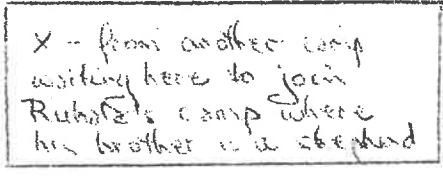 X - from another camp
waiting here to join
camp where
his brother is a shepherd